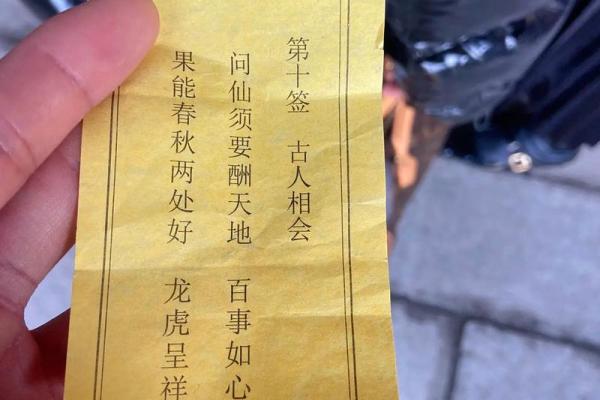 第十签 古人相会
问仙须要酬天地 百事如心
果能春秋两处好 龙虎呈祥